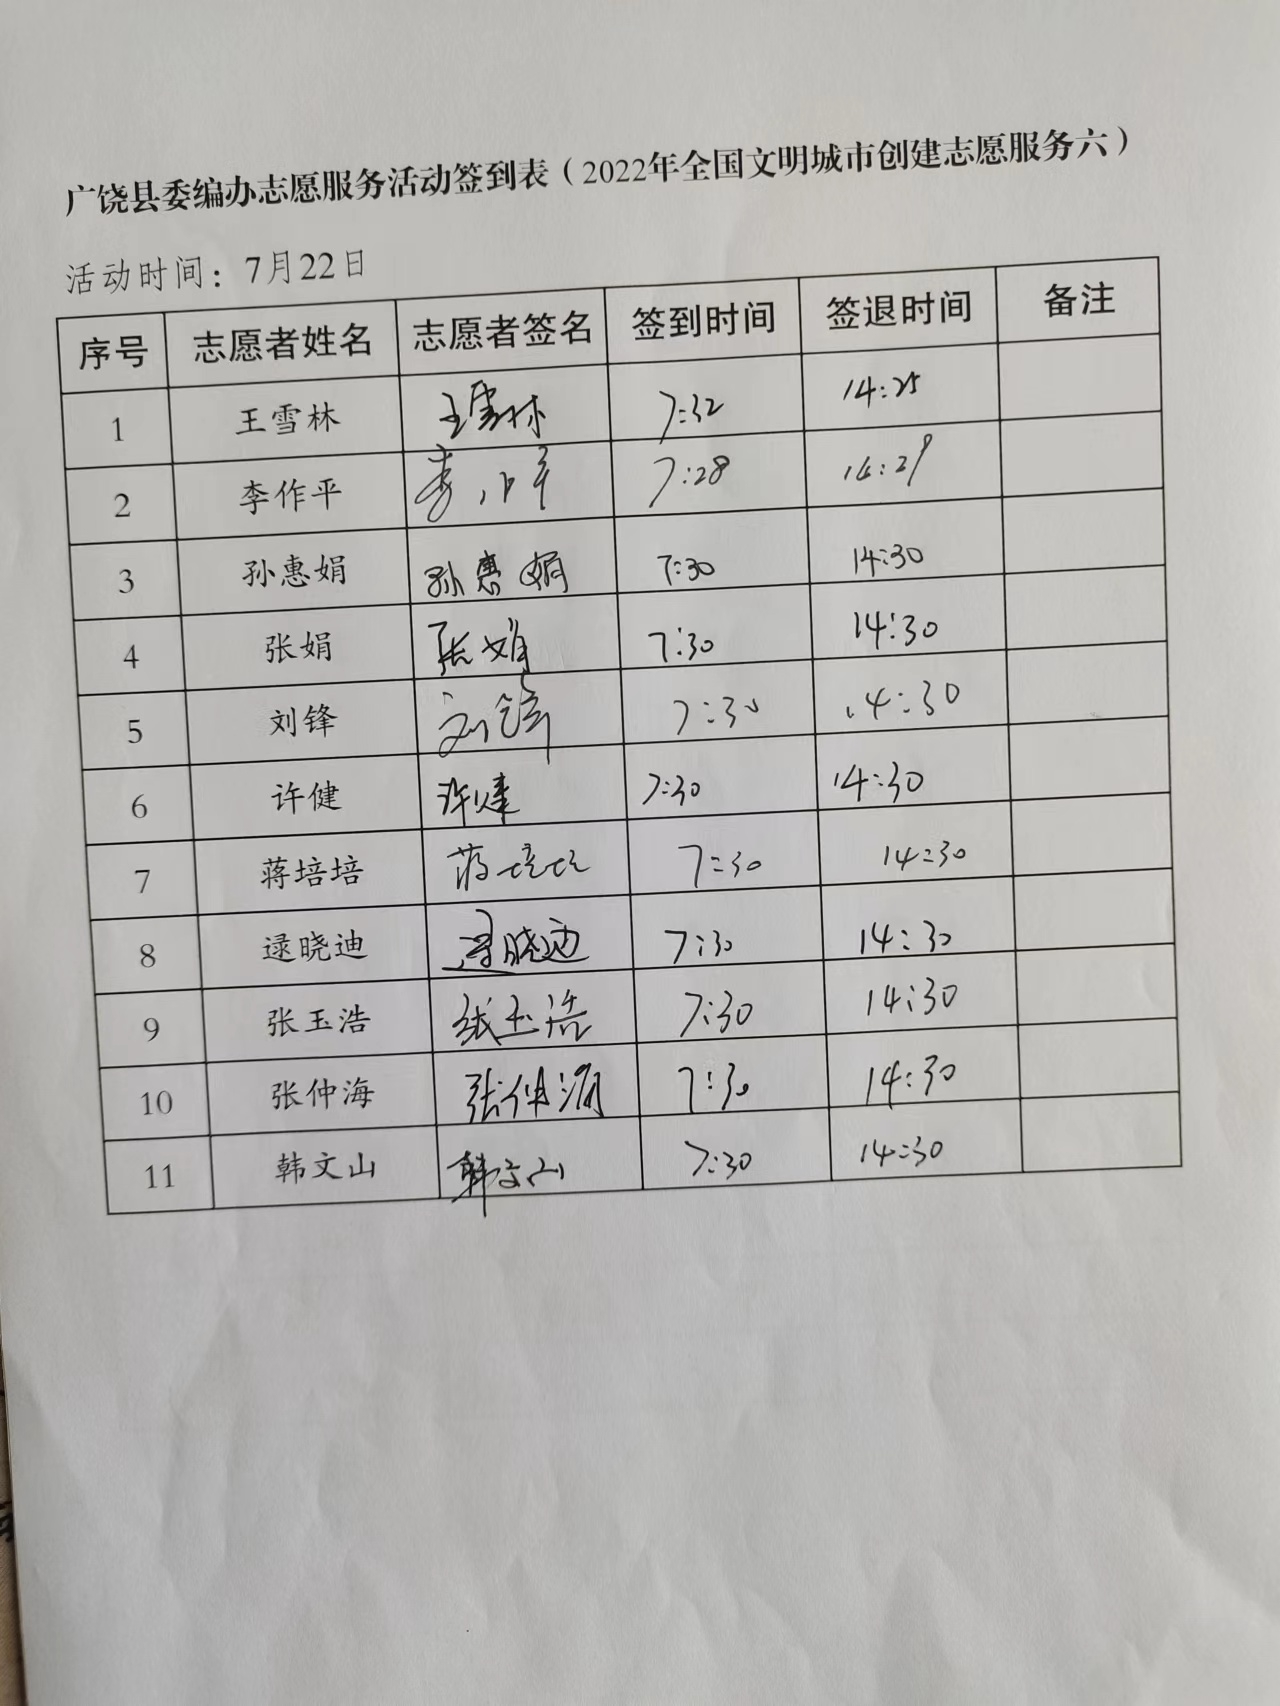 广饶县委编办志愿服务活动签到表（2022年全国文明城市创建志愿服务六）
活动时间：7月22日
序号 志愿者姓名 志愿者签名 签到时间 签退时间 备注
1 王雪林 王雪林 7:32 14:25
2 李作平 李作平 7:28 14:29
3 孙惠娟 孙惠娟 7:30 14:30
4 张娟 张娟 7:30 14:30
5 刘锋 刘锋 7:30 14:30
6 许健 许健 7:30 14:30
7 蒋培培 蒋培培 7:30 14:30
8 逯晓迪 逯晓迪 7:30 14:30
9 张玉浩 张玉浩 7:30 14:30
10 张仲海 张仲海 7:30 14:30
11 韩文山 韩文山 7:30 14:30